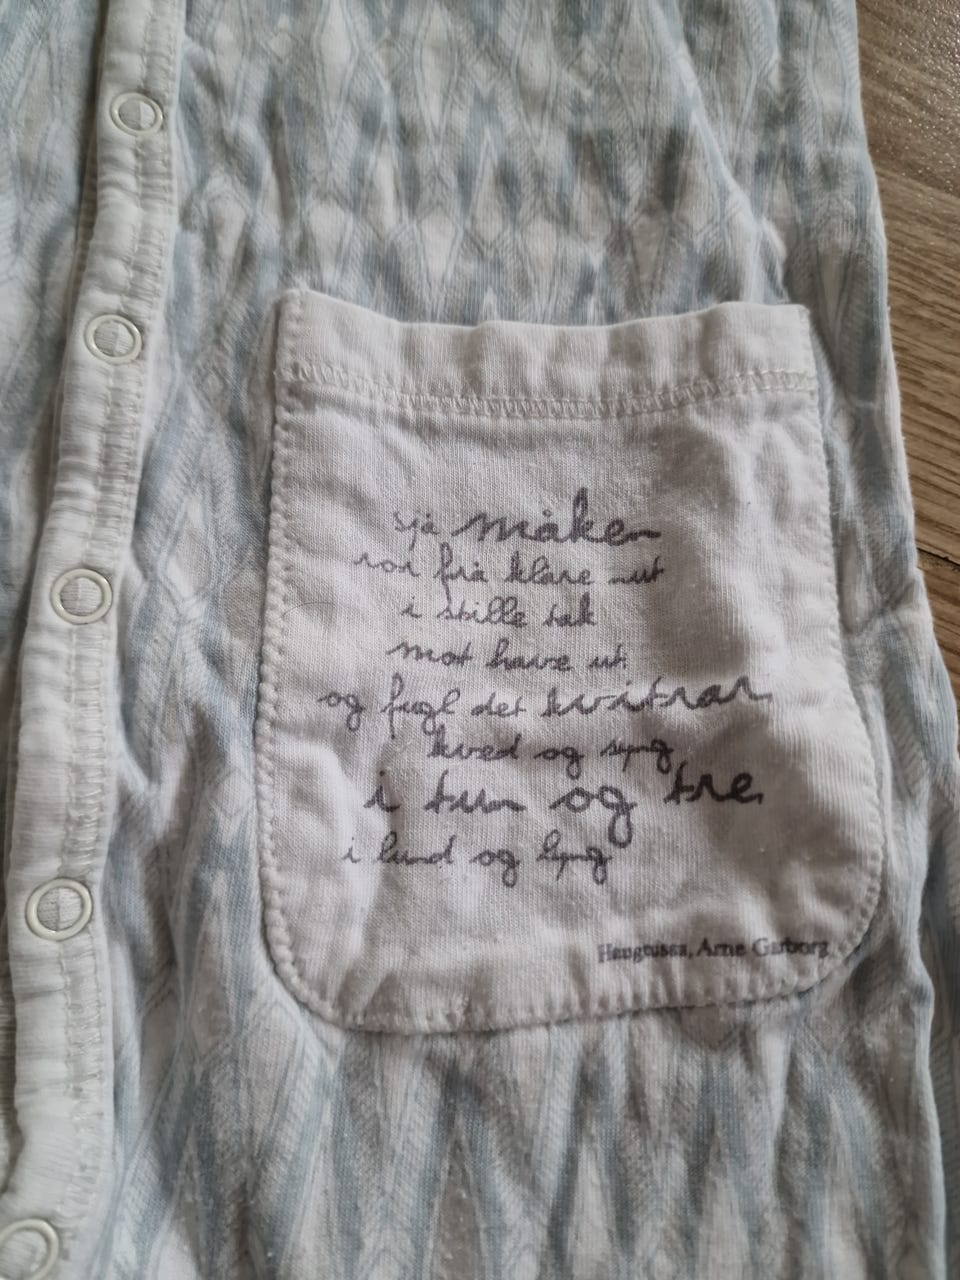 sjå måken
ror frå klare nut
i stille tak
mot have ut
og fugl det kvitrar
kved og syng
i tun og tre
i lund og lyng
Haugtussa, Arne Garborg